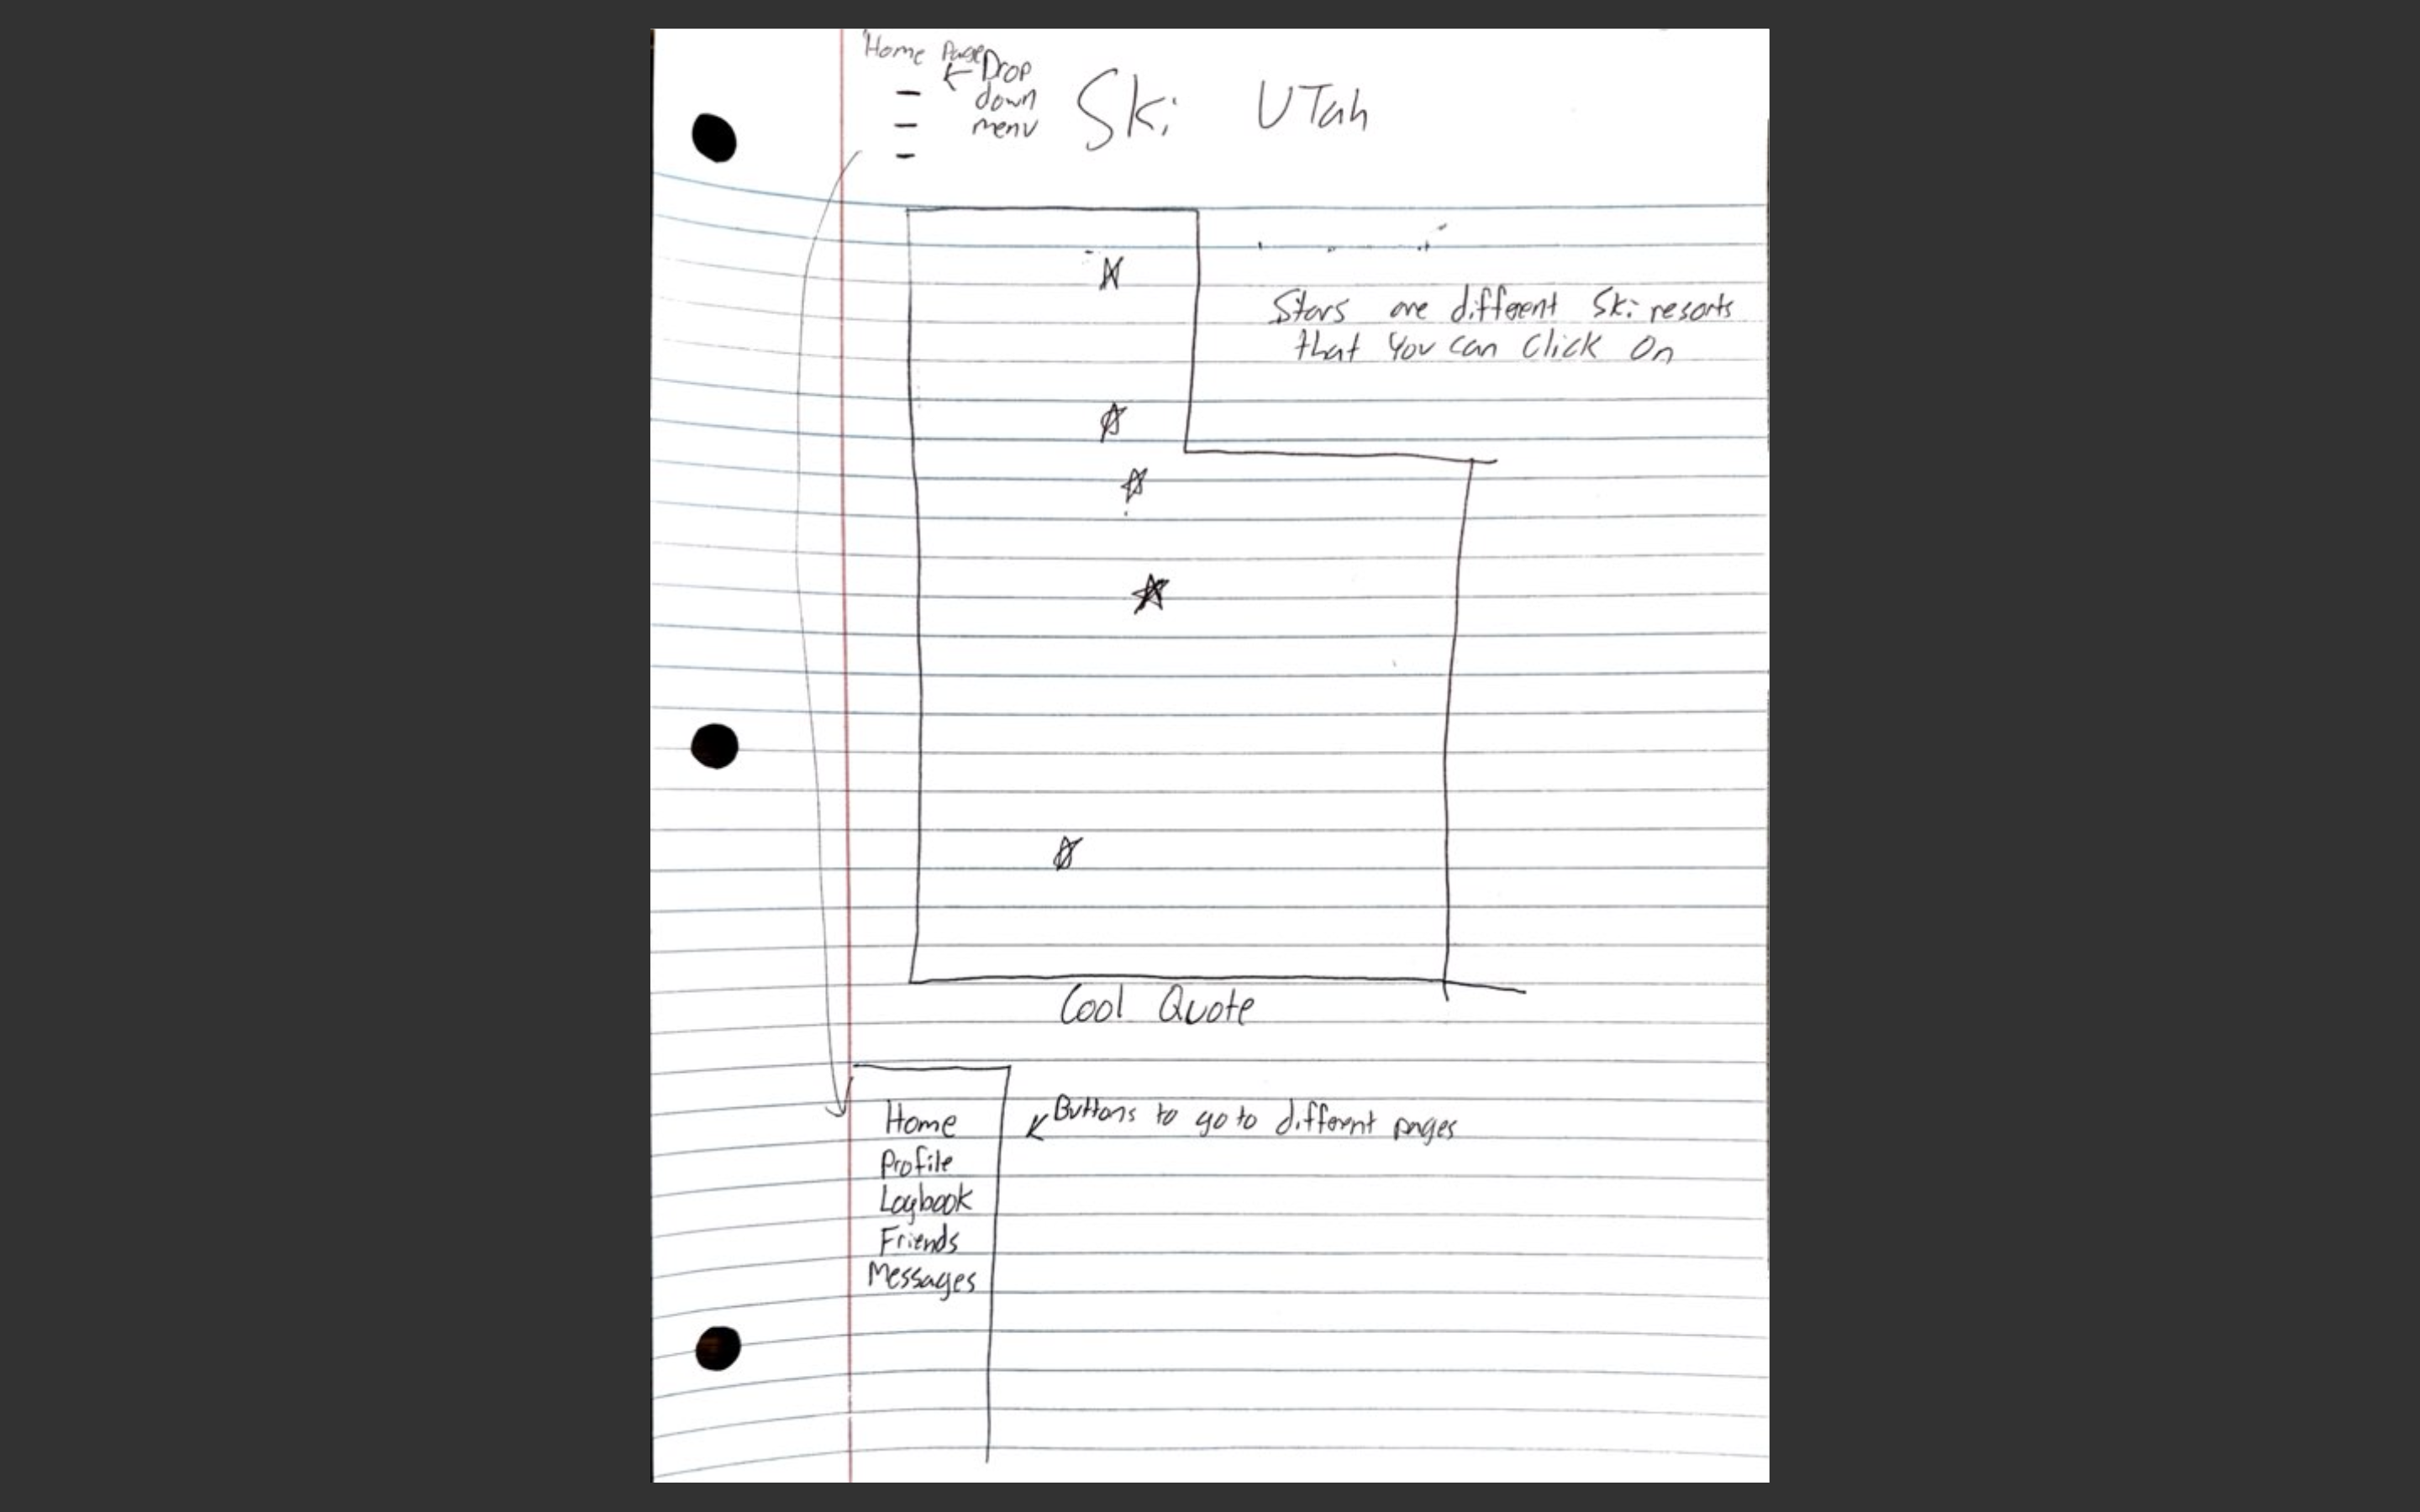 Home Page
Drop
down
menu
Ski Utah
Stars are different Ski resorts
that you can click on
Cool Quote
Home
Profile
Logbook
Friends
Messages
Buttons to go to different pages